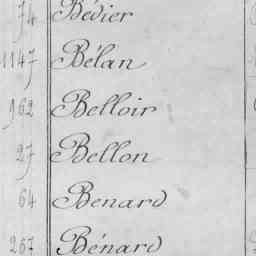 74 Bédier
1147 Bélan
962 Belloir
27 Bellon
64 Benard
267 Bénard